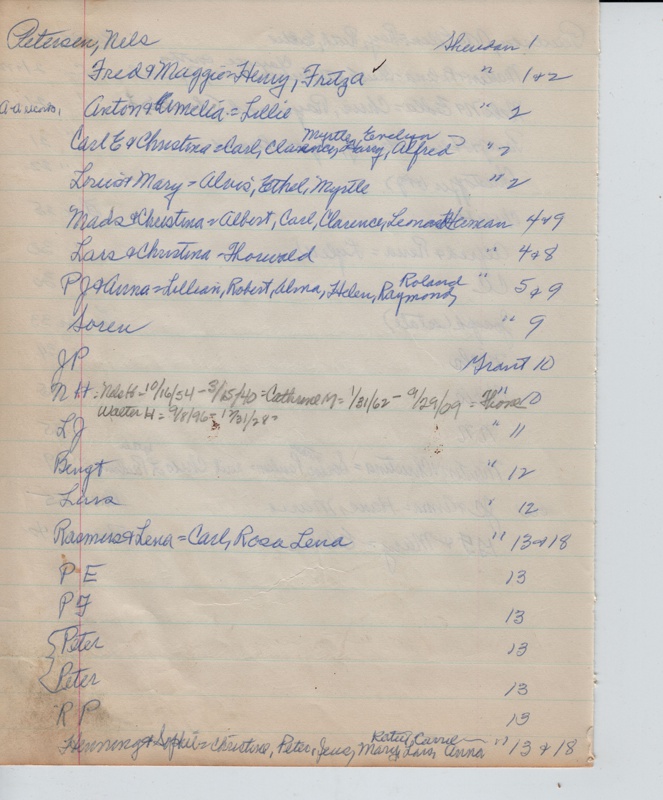 Petersen, Nels Sheridan 1
Fred & Maggie = Henry, Fritza " 1 & 2
Anton & Amelia = Lillie " 2
Myrtle, Evelyn
Carl E & Christina = Carl, Clarence, Harry, Alfred " 2
Louis & Mary = Alvis, Ethel, Myrtle " 2
Mads & Christina = Albert, Carl, Clarence, Leonard Herman 4 & 9
Lars & Christina = Thorwald " 4 & 8
Roland
P J & Anna = Lillian, Robert, Alma, Helen, Raymond, " 5 & 9
Soren " 9
J P Grant 10
N H = Nels H = 10/16/54 - 3/25/40 = Cathrene M = 1/31/62 - 9/29/09 = " 10
Walter H = 9/8/96 = 12/31/28 =
L J " 11
Bengt " 12
Lars " 12
Rasmus & Lena = Carl, Rosa Lena " 13 & 18
P E 13
P F 13
{Peter 13
{Peter 13
R P 13
Carrie
Henning & Sophie = Christine, Peter, Jens, Mary, Lars, Anna " 13 & 18